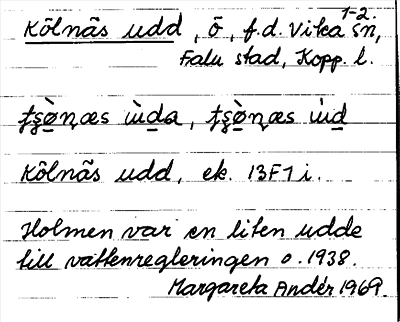 1-2.
Kölnäs udd, ö, f.d. Vika sn,
Falu stad, Kopp. l.
Kölnäs udd, ek. 13F7i.
Holmen var en liten udde
till vattenregleringen o. 1938.
Margareta Andér 1969.